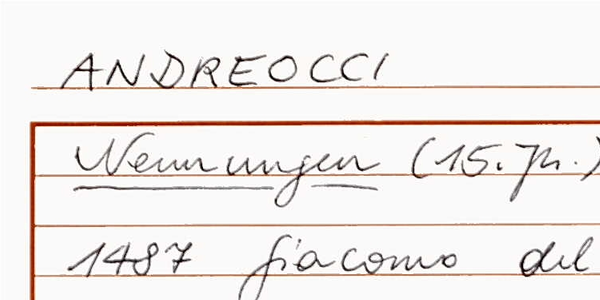 ANDREOCCI
Nennungen (15. Jh.)
1487 Giacomo del